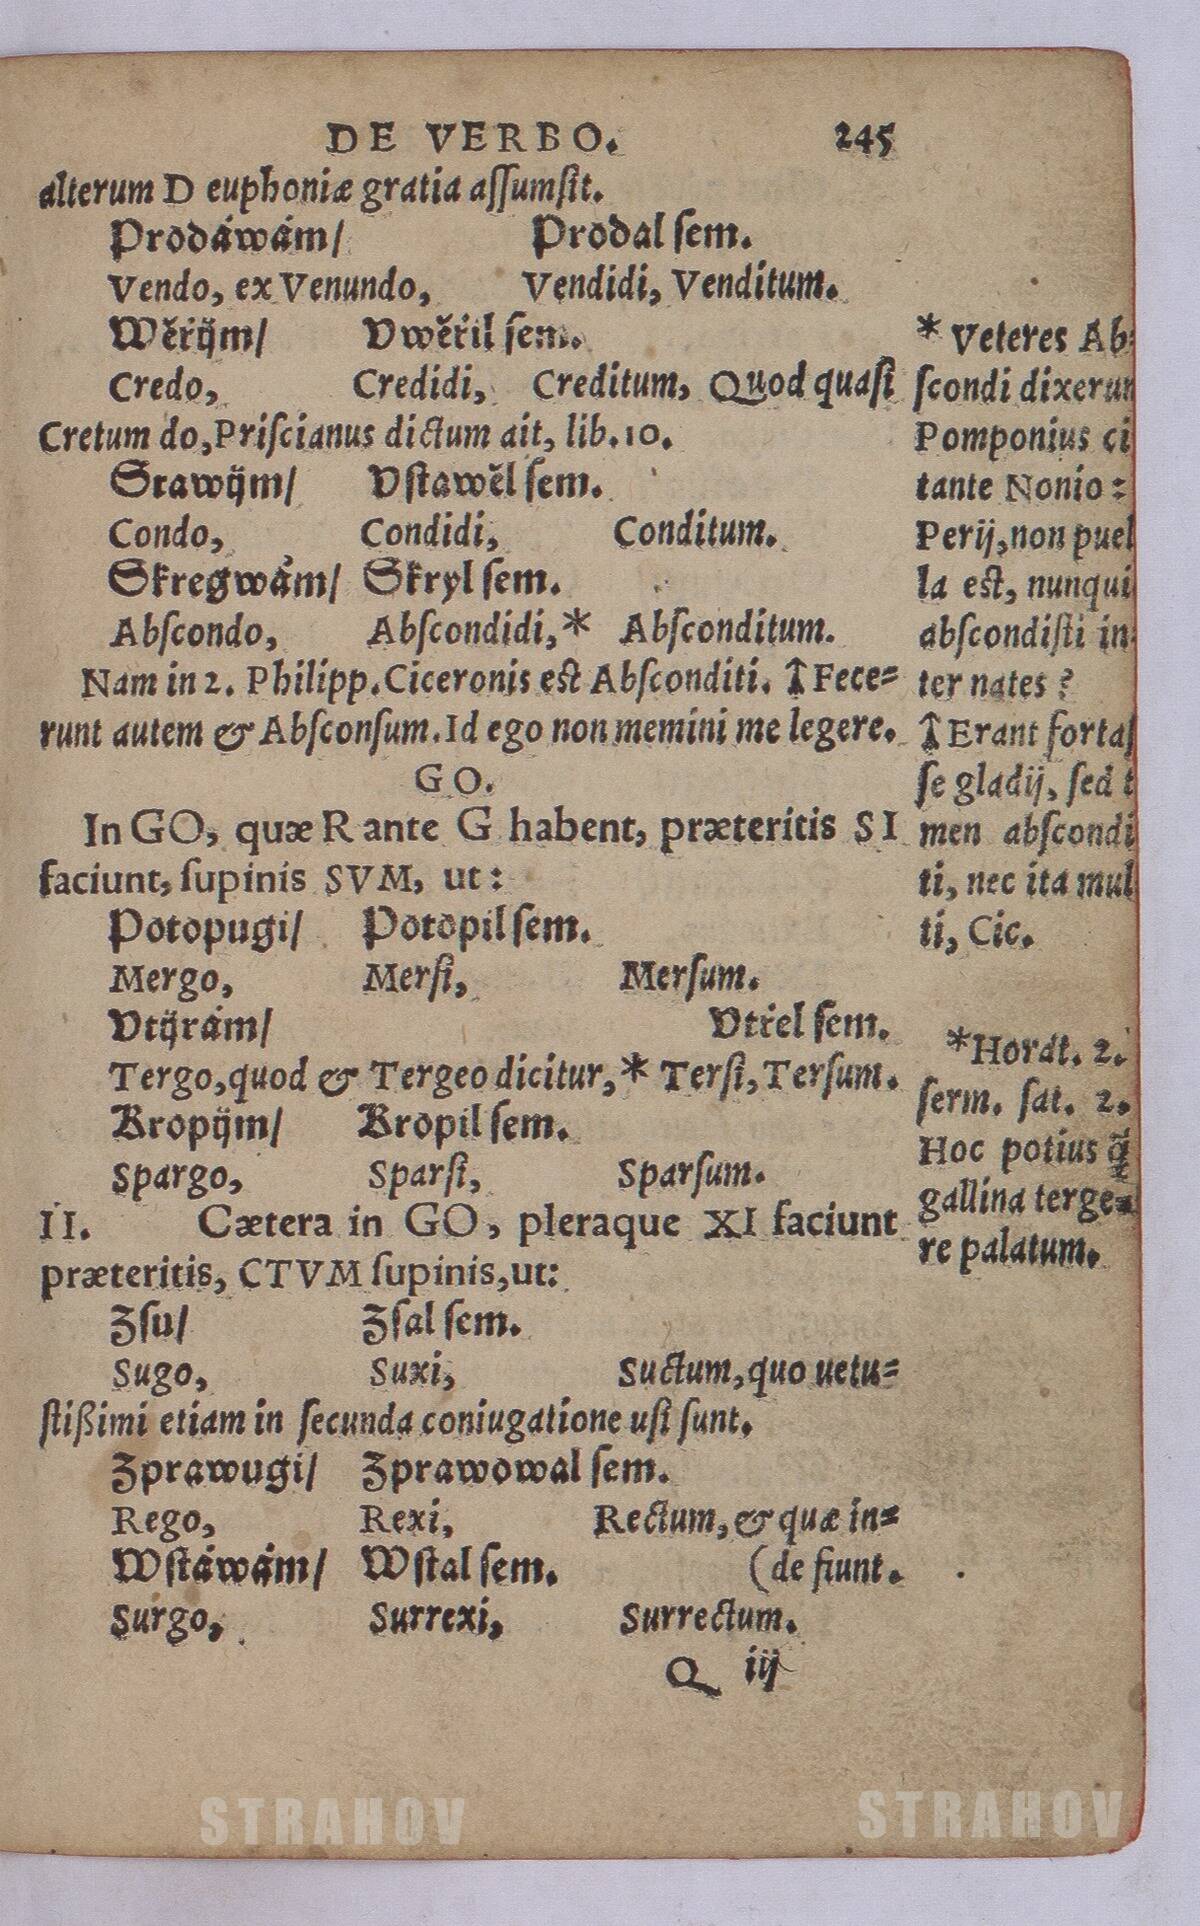 DE VERBO. 245
alterum D euphoniæ gratia aſſumſit.
Prodáwám/ Prodal ſem.
Vendo, ex Venundo, Vendidi, Venditum.
Wěřijm/ Vwěřil ſem.
Credo, Credidi, Creditum, Quod quaſi
Cretum do, Priſcianus dictum ait, lib. 10.
Stawijm/ Vſtawěl ſem.
Condo, Condidi, Conditum.
Skregwám/ Skryl ſem.
Abſcondo, Abſcondidi,* Abſconditum.
Nam in 2. Philipp. Ciceronis est Abſconditi. ↑Fece-
runt autem & Abſconſum. Id ego non memini me legere.
GO.
In GO, quæ R ante G habent, præteritis SI
faciunt, ſupinis SVM, ut:
Potopugi/ Potopil ſem.
Mergo, Merſi, Merſum.
Vtijrám/ Vtřel ſem.
Tergo, quod & Tergeo dicitur,* Terſi, Terſum.
Kropijm/ Kropil ſem.
Spargo, Sparſi, Sparſum.
II. Cætera in GO, pleraque XI faciunt
præteritis, CTVM ſupinis, ut:
Zſu/ Zſal ſem.
Sugo, Suxi, Suctum, quo uetu-
ſtißimi etiam in ſecunda coniugatione uſi ſunt.
Zprawugi/ Zprawowal ſem.
Rego, Rexi, Rectum, & quæ in-
Wſtáwám/ Wſtal ſem. (de fiunt.
Surgo, Surrexi, Surrectum.
Q iij
* Veteres Ab-
ſcondi dixerun
Pomponius ci
tante Nonio:
Perij, non puel
la est, nunqui
abſcondiſti in-
ter nates?
↑Erant fortaſ
ſe gladij, ſed t
men abſcondi
ti, nec ita mul
ti, Cic.
*Horat. 2.
ſerm. ſat. 2.
Hoc potius q̃
gallina terge-
re palatum.
STRAHOV STRAHOV